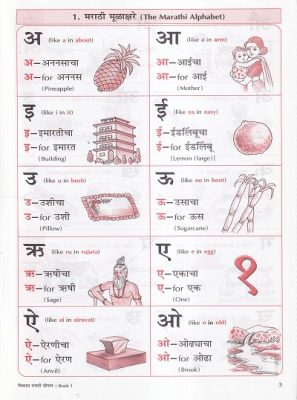 1. मराठी मूळाक्षरे (The Marathi Alphabet)
अ (like a in about)
अ–अननसाचा
अ–for अननस
(Pineapple)
आ (like a in arm)
आ–आईचा
आ–for आई
(Mother)
इ (like i in it)
इ–इमारतीचा
इ–for इमारत
(Building)
ई (like ea in easy)
ई–ईडलिंबूचा
ई–for ईडलिंबू
(Lemon (large))
उ (like u in bush)
उ–उशीचा
उ–for उशी
(Pillow)
ऊ (like oo in boot)
ऊ–उसाचा
ऊ–for ऊस
(Sugarcane)
ऋ (like ru in rujuta)
ऋ–ऋषीचा
ऋ–for ऋषी
(Sage)
ए (like e in egg)
ए–एकाचा
ए–for एक
(One)
१
ऐ (like ai in airavat)
ऐ–ऐरणीचा
ऐ–for ऐरण
(Anvil)
ओ (like o in old)
ओ–ओढ्याचा
ओ–for ओढा
(Brook)
मराठी : Book 1
3